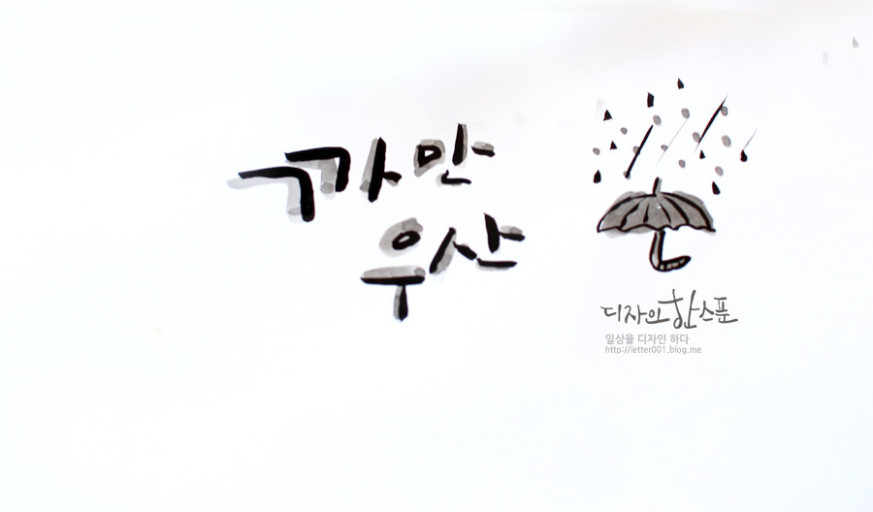 까만
우산
디자인한스푼
일상을 디자인 하다
http://letter001.blog.me